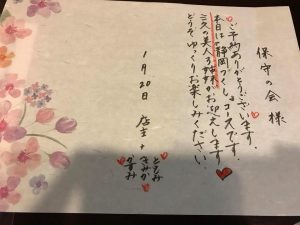 保守の会様
ご予約ありがとうございます。
本日は静岡フルコースです。
美人姉妹がお迎えします
どうぞゆっくりお楽しみください。
1月20日 店主+
ともみ
きみか
かすみ